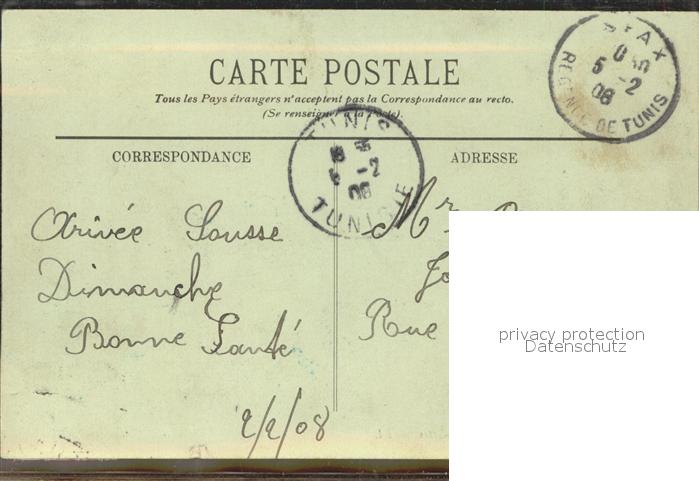 CARTE POSTALE
Tous les Pays étrangers n'acceptent pas la Correspondance au recto.
(Se renseigner à la Poste).
CORRESPONDANCE
ADRESSE
SFAX
5 -2
08
REGENCE DE TUNIS
TUNIS
5 -2
08
TUNISIE
Arivée Sousse
Dimanche
Bonne Santé
2/2/08
Mr
Rue
privacy protection
Datenschutz